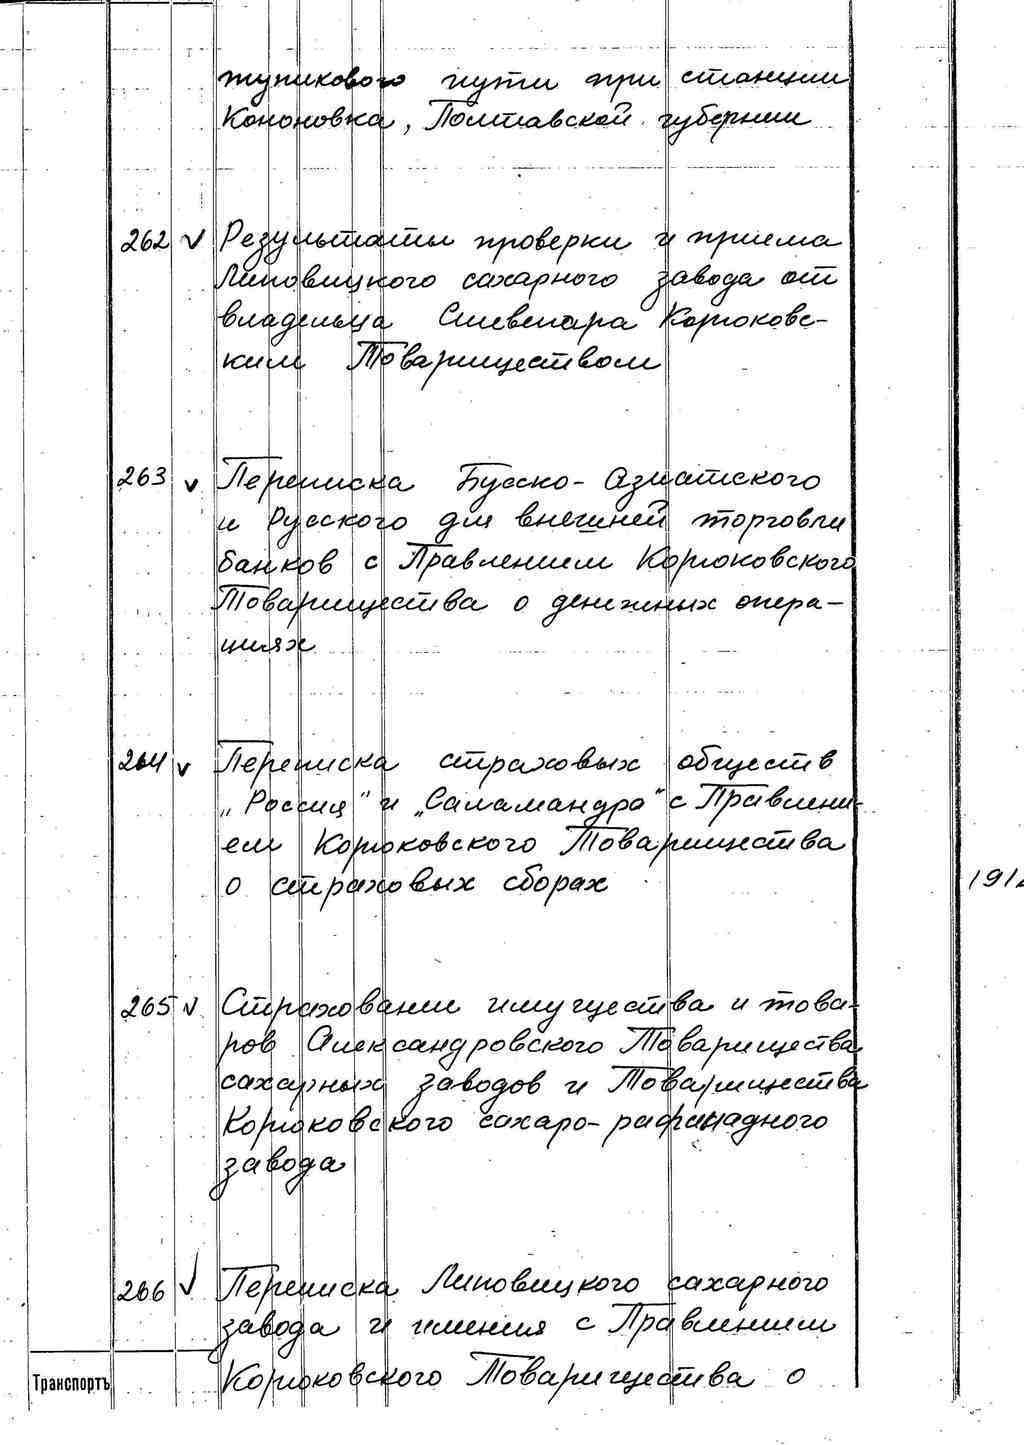 тупикового пути при станции
Кононовка, Полтавской губернии
262 v Результаты проверки и приема
Липовицкого сахарного завода от
владельца Корюковс-
ким Товариществом
263 v Переписка Русско-Азиатского
и Русского для внешней торговли
банков с Правлением Корюковского
Товарищества о денежных опера-
циях
264 v Переписка страховых обществ
„Россия" и „Саламандра" с Правлени-
ем Корюковского Товарищества
о страховых сборах
191
265 v Страхование имущества и това-
ров Александровского Товарищества
сахарных заводов и Товарищества
Корюковского сахаро-рафинадного
завода
266 v Переписка Липовицкого сахарного
завода и имения с Правлением
Корюковского Товарищества о
Транспортъ